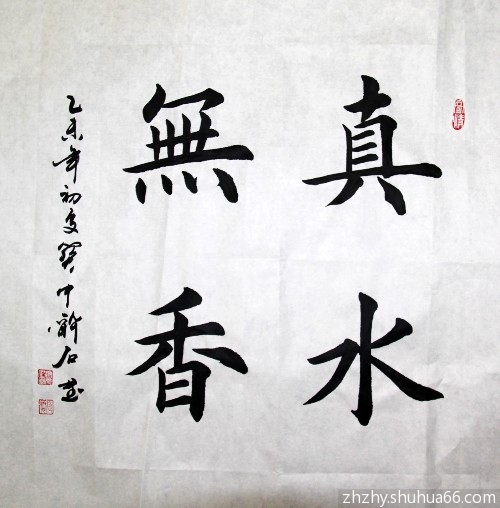 真水
無香
乙未年初
zhzhy.shuhua66.com